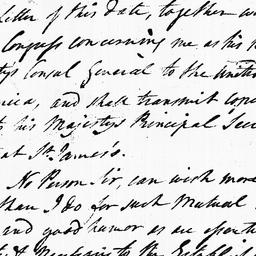 Letter of this Date, together w
Congress concerning me as his
tys Consul General to the Unite
ica, and shall transmit cop
his Majestys Principal Sec
at St. James's.
No Person Sir, can wish more
than I do for such Mutual
and good humor as are essenti
to the Establis